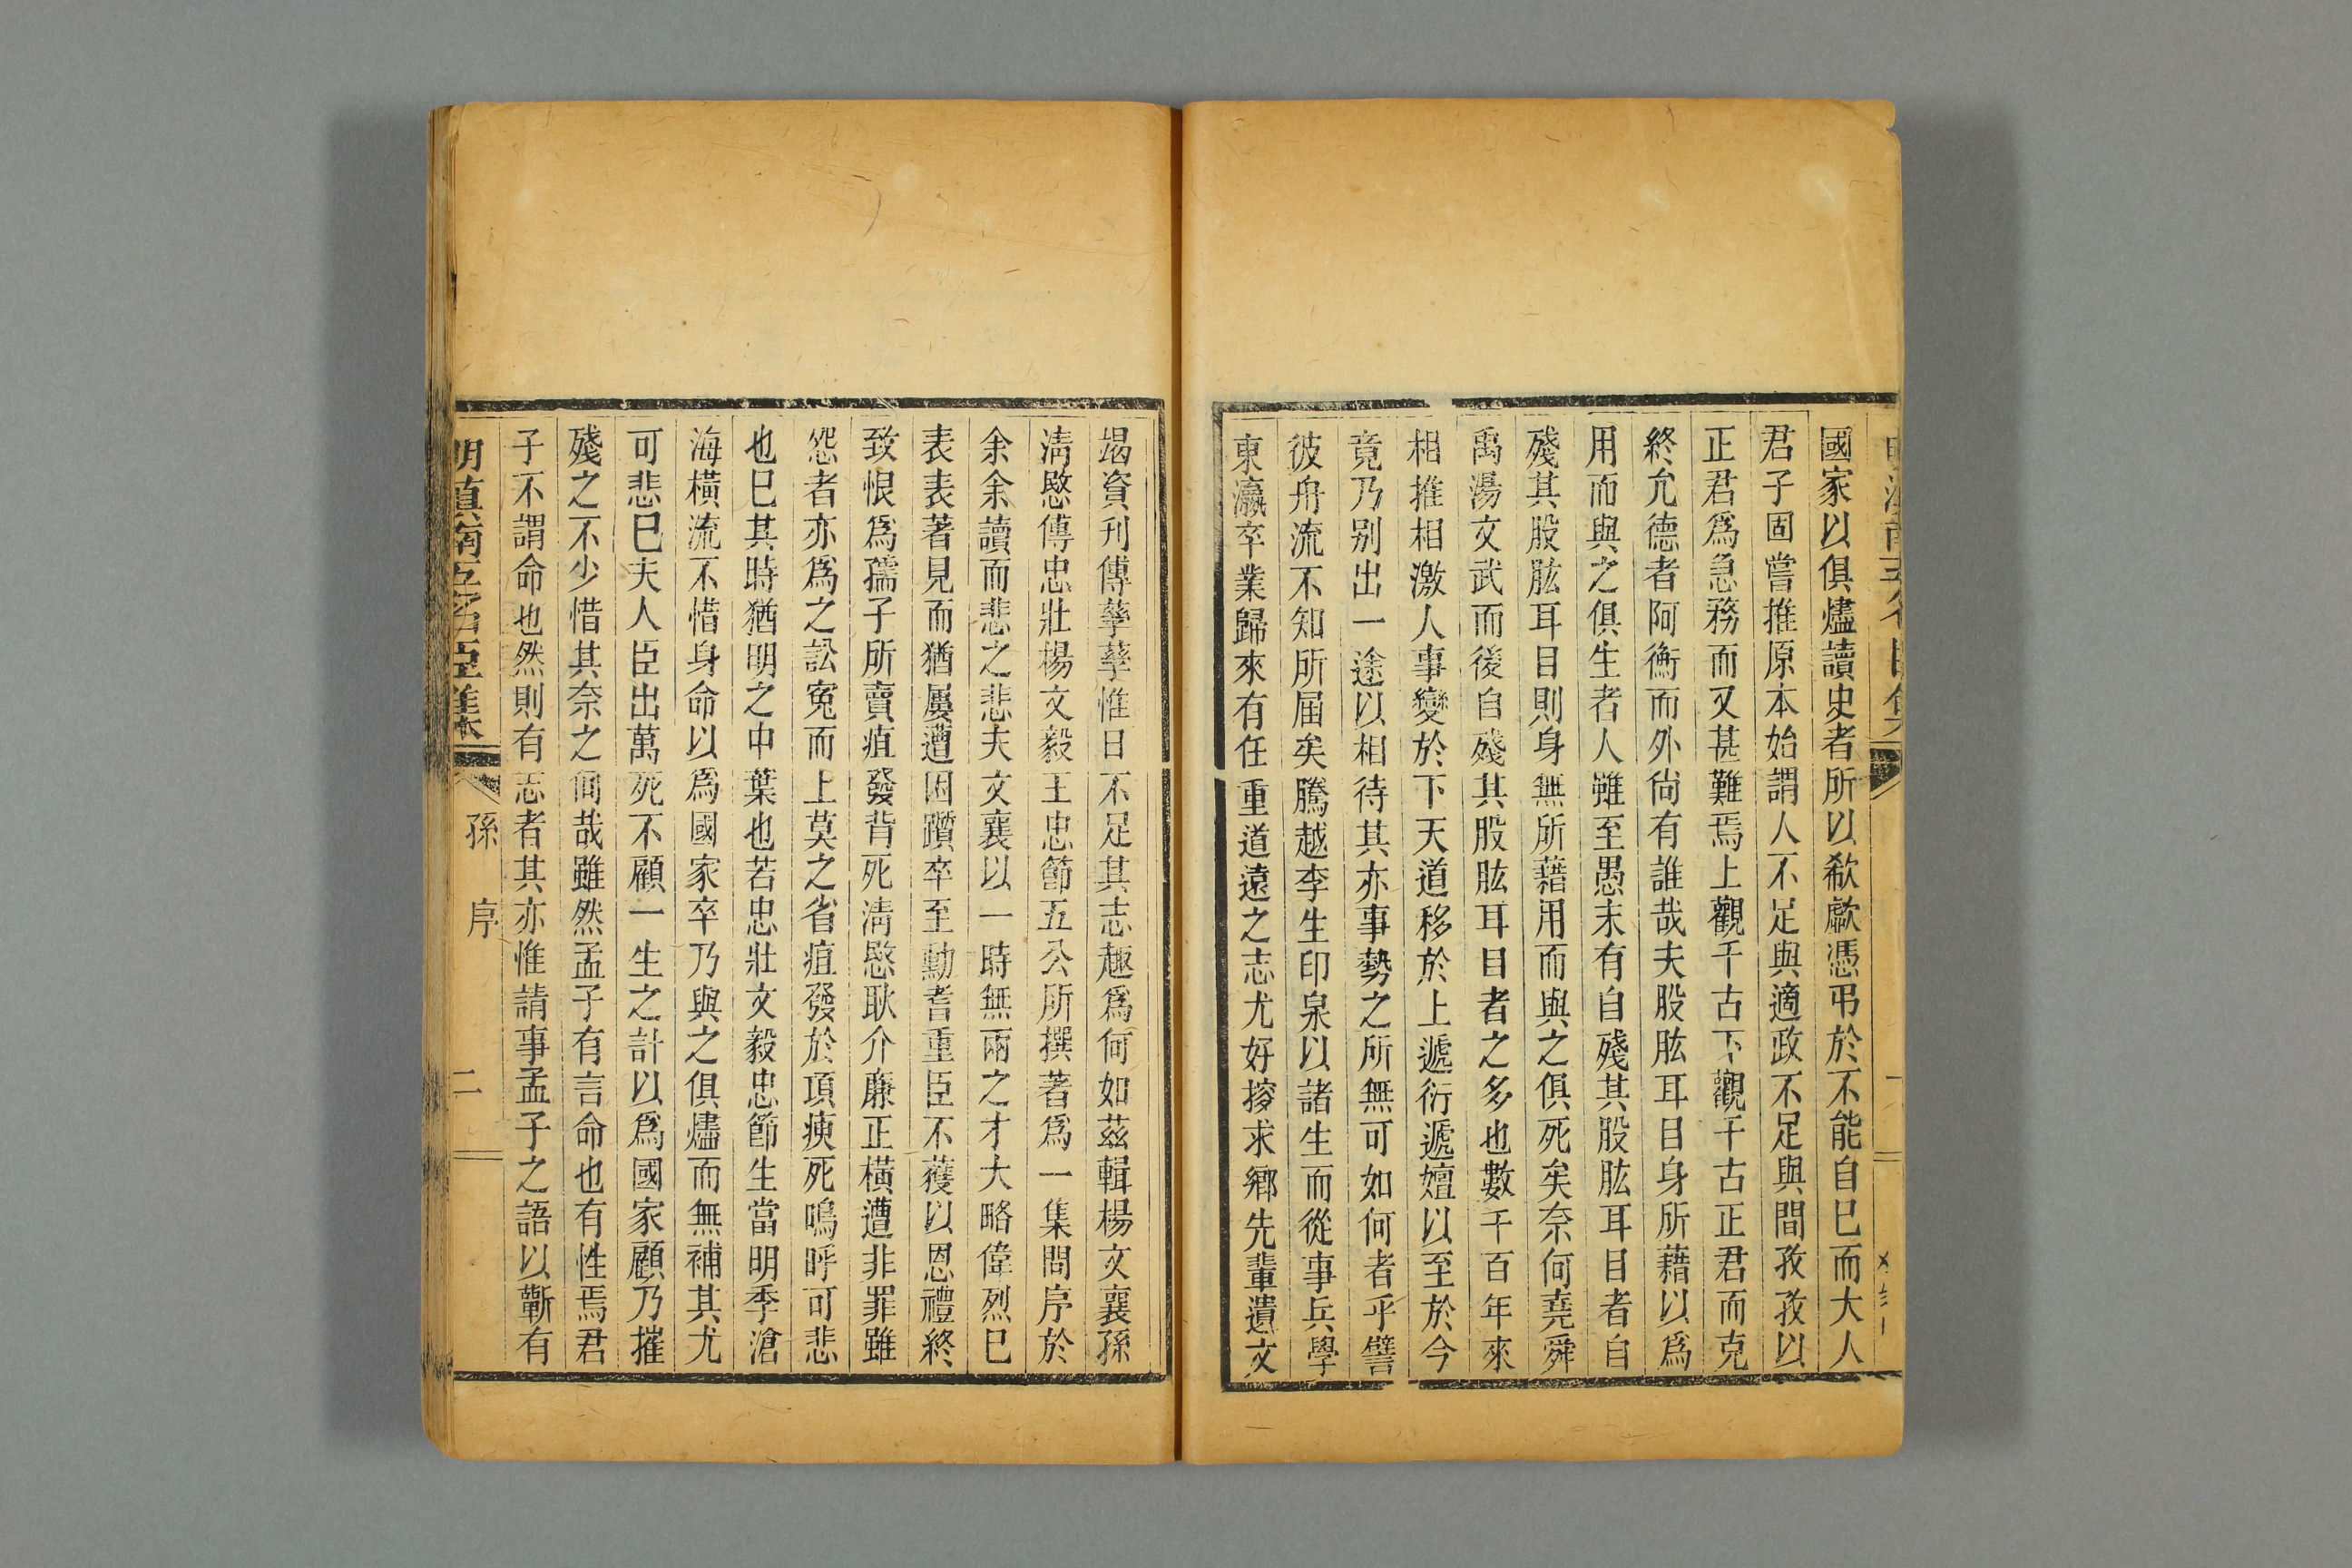 國家以俱燼讀史者所以欷歔憑弔於不能自已而大人
君子固嘗推原本始謂人不足與適政不足與間孜孜以
正君爲急務而又甚難焉上觀千古下觀千古正君而克
終允德者阿衡而外尙有誰哉夫股肱耳目身所藉以爲
用而與之俱生者人雖至愚未有自殘其股肱耳目者自
殘其股肱耳目則身無所藉用而與之俱死矣奈何堯舜
禹湯文武而後自殘其股肱耳目者之多也數千百年來
相推相激人事變於下天道移於上遞衍遞嬗以至於今
竟乃别出一途以相待其亦事勢之所無可如何者乎譬
彼舟流不知所屆矣騰越李生印泉以諸生而從事兵學
東瀛卒業歸來有任重道遠之志尤好搜求鄉先輩遺文
竭資刊傳孳孳惟日不足其志趣爲何如茲輯楊文襄孫
淸愍傅忠壯楊文毅王忠節五公所撰著爲一集問序於
余余讀而悲之悲夫文襄以一時無兩之才大略偉烈已
表表著見而猶屢遭困躓卒至勳耆重臣不獲以恩禮終
致恨爲孺子所賣疽發背死淸愍耿介廉正橫遭非罪雖
怨者亦爲之訟寃而上莫之省疽發於項瘐死嗚呼可悲
也已其時猶明之中葉也若忠壯文毅忠節生當明季滄
海橫流不惜身命以爲國家卒乃與之俱燼而無補其尤
可悲已夫人臣出萬死不顧一生之計以爲國家顧乃摧
殘之不少惜其奈之何哉雖然孟子有言命也有性焉君
子不謂命也然則有志者其亦惟請事孟子之語以蘄有
明滇南五名臣遺集
孫
序
二